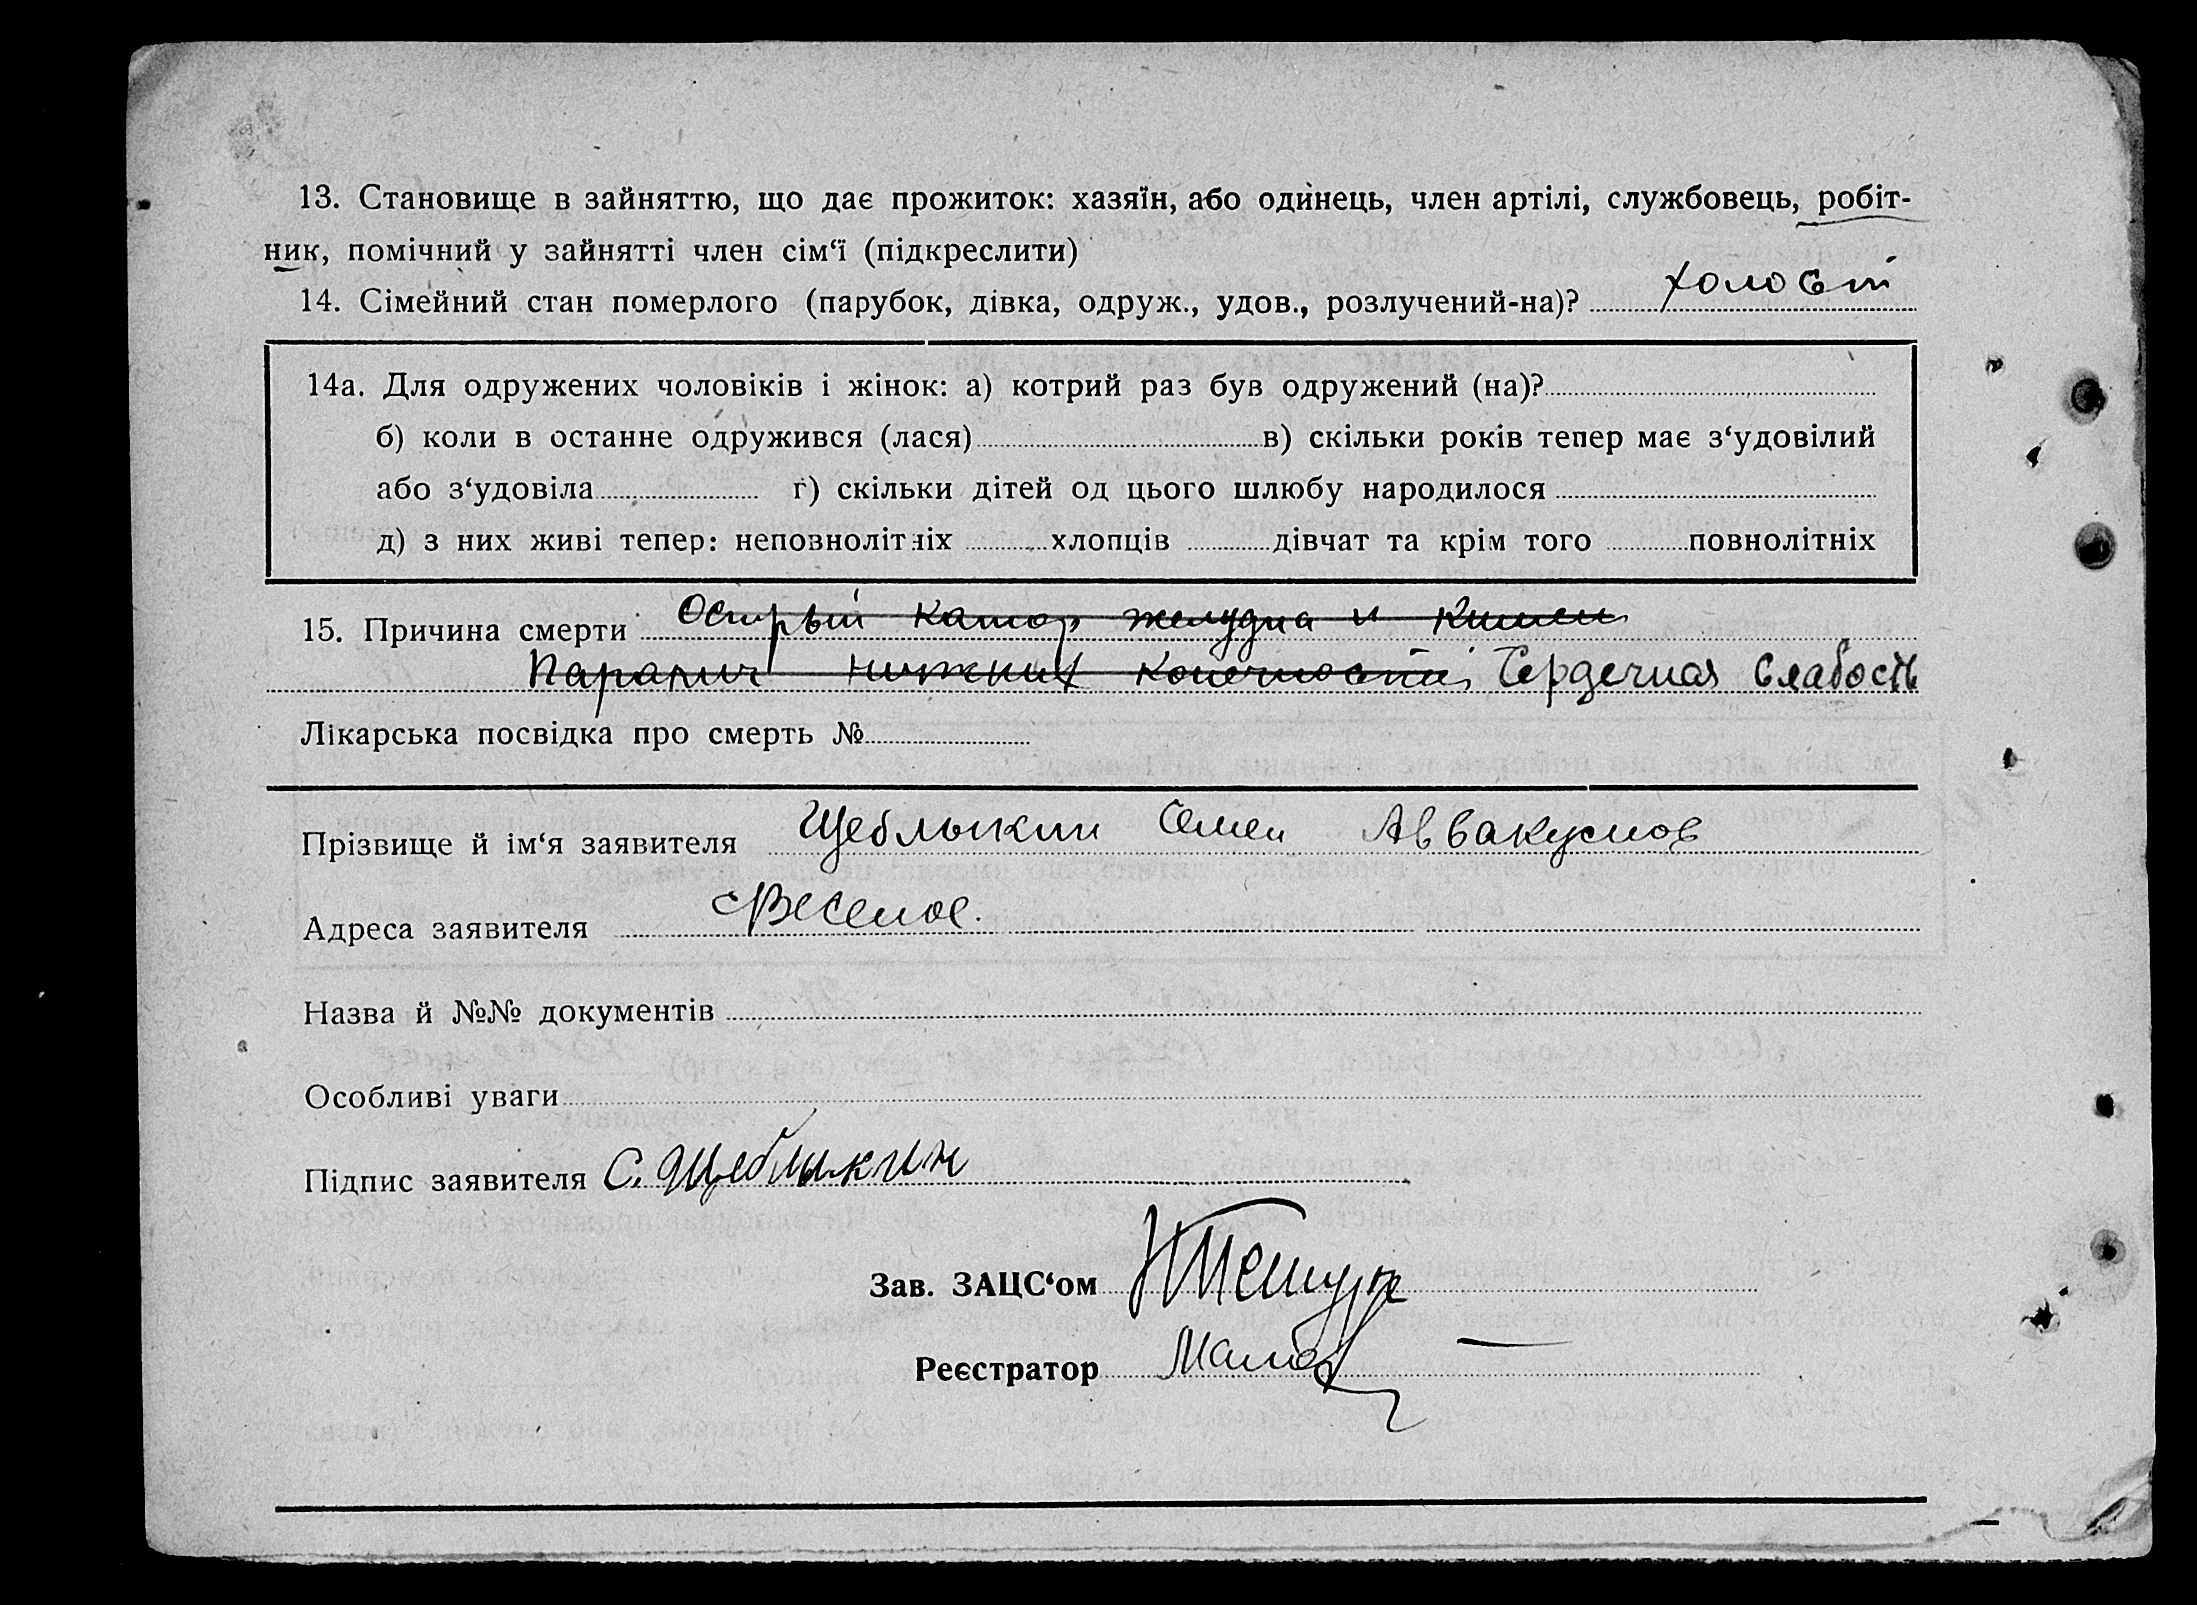 13. Становище в зайняттю, що дає прожиток: хазяїн, або одинець, член артілі, службовець, робіт-
ник, помічний у зайнятті член сім‘ї (підкреслити)
14. Сімейний стан померлого (парубок, дівка, одруж., удов., розлучений-на)? холост
14а. Для одружених чоловіків і жінок: а) котрий раз був одружений (на)?
б) коли в останне одружився (лася) в) скільки років тепер має з‘удовілий
або з‘удовіла г) скільки дітей од цього шлюбу народилося
д) з них живі тепер: неповнолітніх хлопців дівчат та крім того повнолітніх
15. Причина смерти Острый катар желудка и кишек
Паралич нижних конечностей, Сердечная слабость
Лікарська посвідка про смерть №
Прізвище й ім‘я заявителя Щеблыкин Семен Аввакумов
Адреса заявителя с Веселое.
Назва й №№ документів
Особливі уваги
Підпис заявителя С. Щеблыкин
Зав. ЗАЦС‘ом
Реєстратор